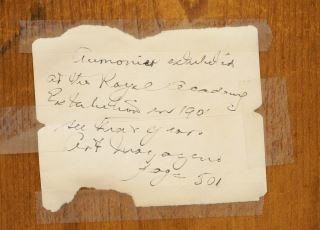 Aumonier exhibited
at the Royal Academy
Exhibition in 190
see that years
Art magazine
page 501